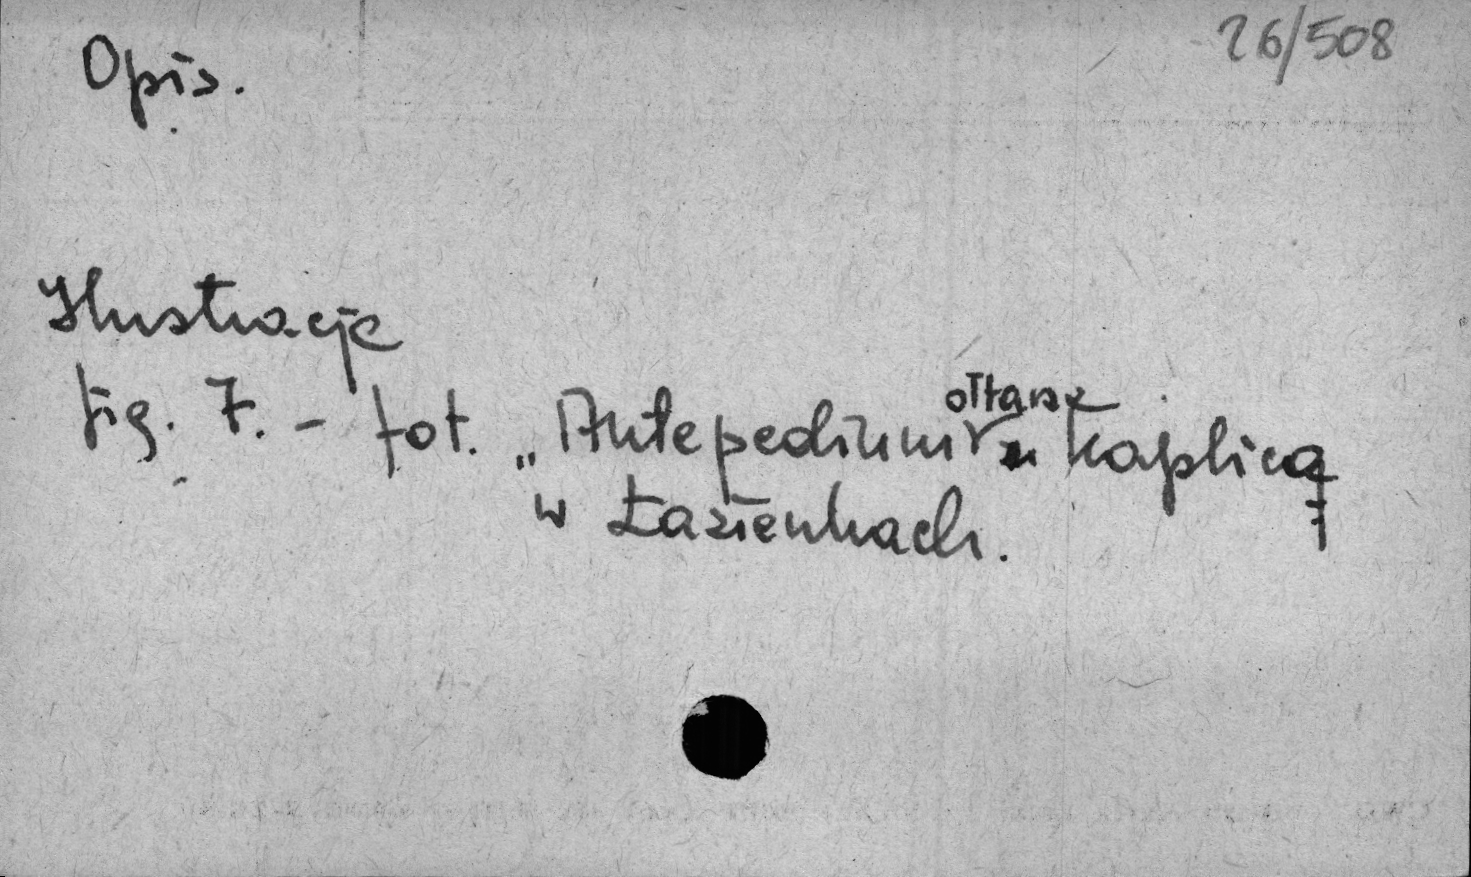 26/508
Opis.
Ilustracje
fig. 7. - fot. „Antepedium ołtarza kaplicą
w Łazienkach.